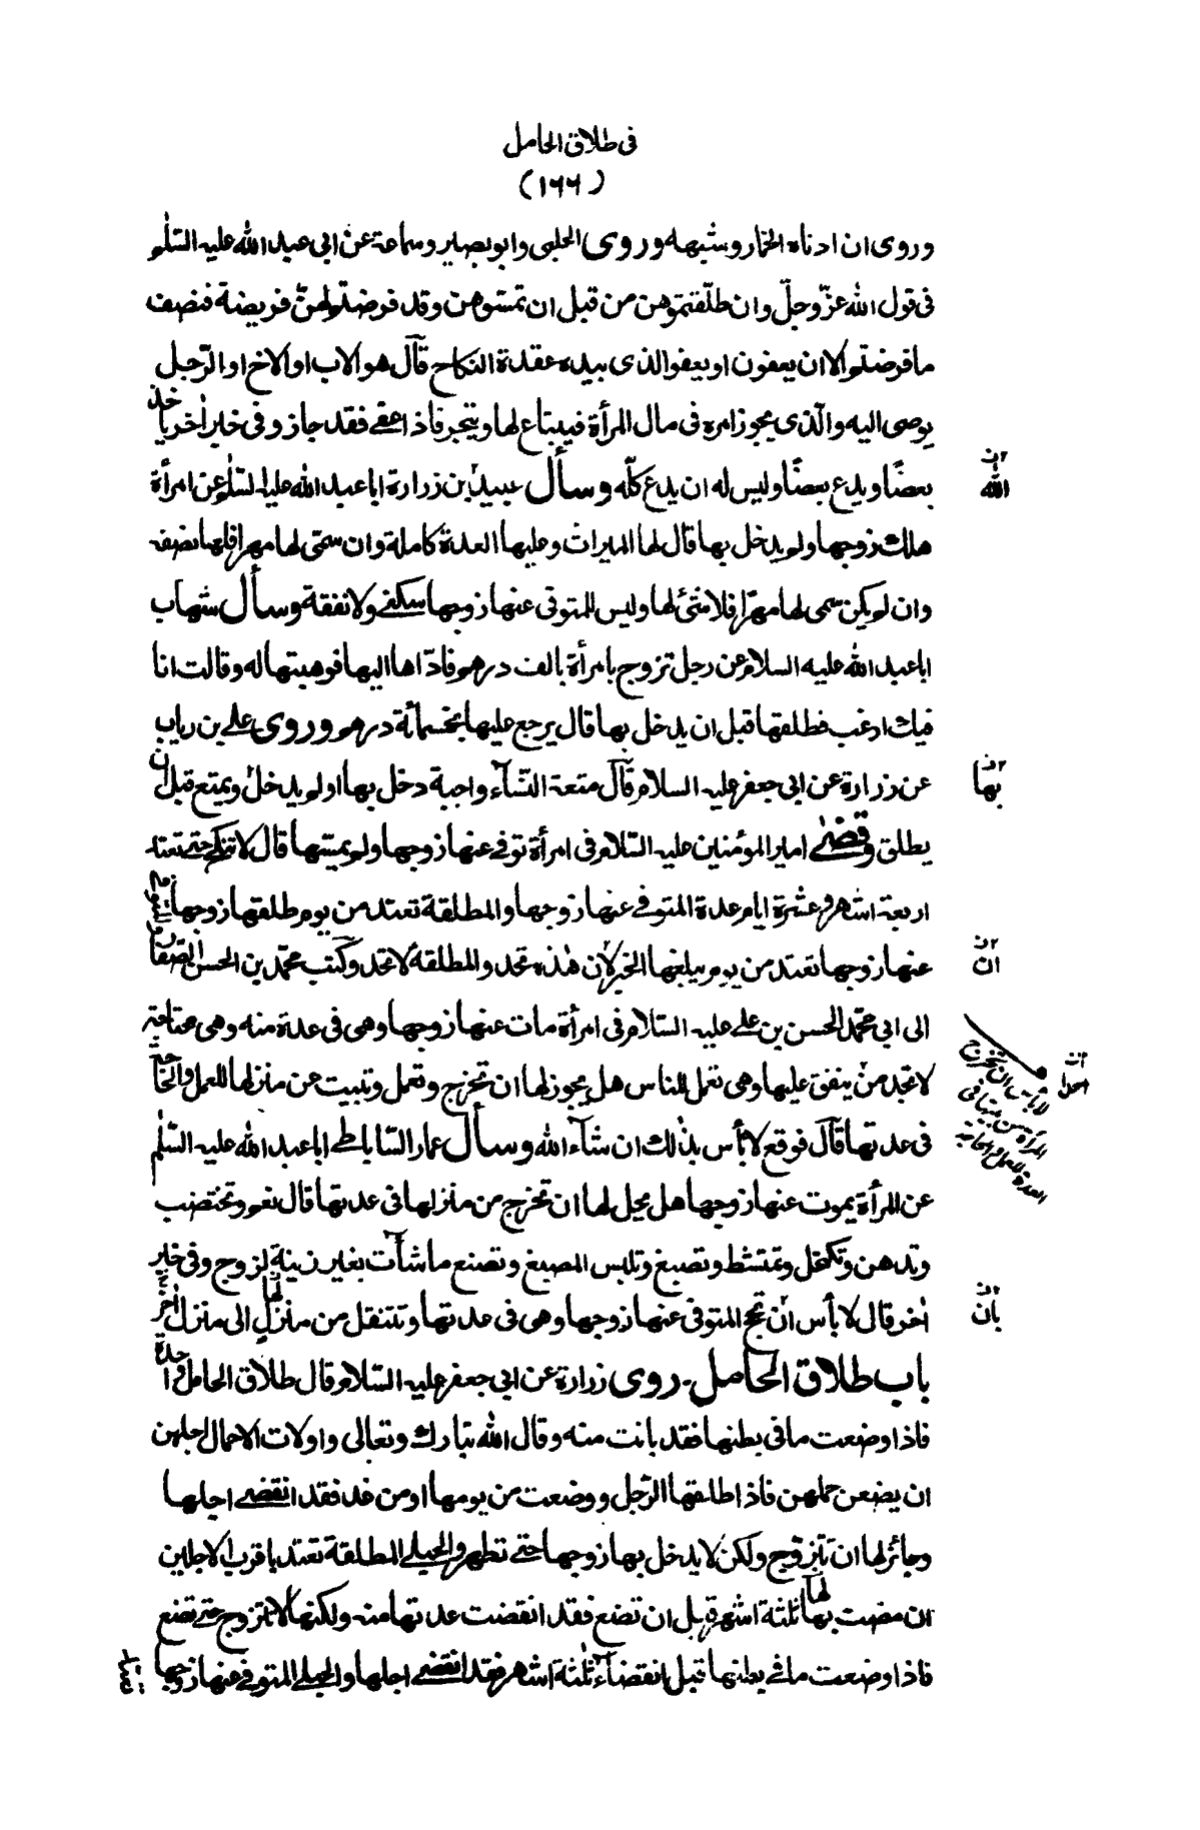 فى طلاق الحامل
(١٦٦)
وروى ان ادناه الخمار وشبهه وروى الحلبى وابو بصير وسماعة عن ابى عبد الله عليه السّلم
فى قول الله عزّ وجلّ وان طلّقتموهن من قبل ان تمسّوهن وقد فرضتم لهنّ فريضة فنصف
ما فرضتم الا ان يعفون او يعفو الذى بيده عقدة النكاح قال هو الاب او الاخ او الرّجل
يوصى اليه والّذى يجوز امره فى مال المرأة فيبتاع لها ويتجر فاذا عفى فقد جاز وفى خبر اٰخر ياخذ
بعضًا ويدع بعضًا وليس له ان يدع كلّه وسأل عبيد بن زرارة ابا عبد الله عليه السّلم عن امرأة
هلك زوجها ولم يدخل بها قال لها الميراث وعليها العدة كاملة وان سمّى لها مهرا فلها نصفه
وان لم يكن سمى لها مهرًا فلا شئ لها وليس للمتوفى عنها زوجها سكنى ولا نفقة وسأل شهاب
ابا عبد الله عليه السلام عن رجل تزوج بامرأة بالف درهم فادّاها اليها فوهبتها له وقالت انا
فيك ارغب فطلقها قبل ان يدخل بها قال يرجع عليها بخمسمأئة درهم وروى على بن رياب
عن زرارة عن ابى جعفر عليه السلام قال متعة النّسآء واجبة دخل بها او لم يدخل ويمتع قبل ان
يطلق وقضى امير المؤمنين عليه السّلام فى امرأة توفى عنها زوجها ولم يمسّها قال لا تنكح حتى تعتد
اربعة اشهر وعشرة ايام عدة المتوفى عنها زوجها والمطلقة تعتد من يوم طلقها زوجها والمتوفى
عنها زوجها تعتد من يوم يبلغها الخبر لان هٰذه تحد والمطلقة لا تحد وكتب محمّد بن الحسن الصّفار
الى ابى محمّد الحسن بن على عليه السّلام فى امرأة مات عنها زوجها وهى فى عدة منه وهى محتاجة
لا تجد من ينفق عليها وهى تعمل للناس هل يجوز لها ان تخرج وتعمل وتبيت عن منزلها للعمل والحاجة
فى عدتها قال فوقع لا بأس بذٰلك ان شآء الله وسأل عمار السّاباطى ابا عبد الله عليه السّلم
عن المرأة يموت عنها زوجها هل يحل لها ان تخرج من منزلها فى عدتها قال نعم وتختضب
وتدهن وتكتحل وتمتشط وتصبغ وتلبس المصبغ وتصنع ما شآءت بغير زينة لزوج وفى خبر
اٰخر قال لا بأس ان تحج المتوفى عنها زوجها وهى فى عدتها وتنتقل من منزل الى منزل اٰخر
باب طلاق الحامل - روى زرارة عن ابى جعفر عليه السّلام قال طلاق الحامل واحدة
فاذا وضعت ما فى بطنها فقد بانت منه وقال الله تبارك وتعالى واولات الاحمال اجلهن
ان يضعن حملهن فاذا طلقها الرّجل ووضعت من يومها او من غد فقد انقضى اجلها
وجائز لها ان تتزوّج ولكن لا يدخل بها زوجها حتى تطهر والحبلى المطلقة تعتد باقرب الاجلين
ان مضت بها لها ثلثة اشهر قبل ان تضع فقد انقضت عدتها منه ولكنها لا تتزوج حتى تضع
فاذا وضعت ما فى بطنها قبل انقضآء ثلٰثة اشهر فقد انقضى اجلها والحبلى المتوفى عنها زوجها
الله
بها
ان
احدا
لا باس ان تخرج
المرأة من بيتها فى
العدة للعمل والحاجة
بان